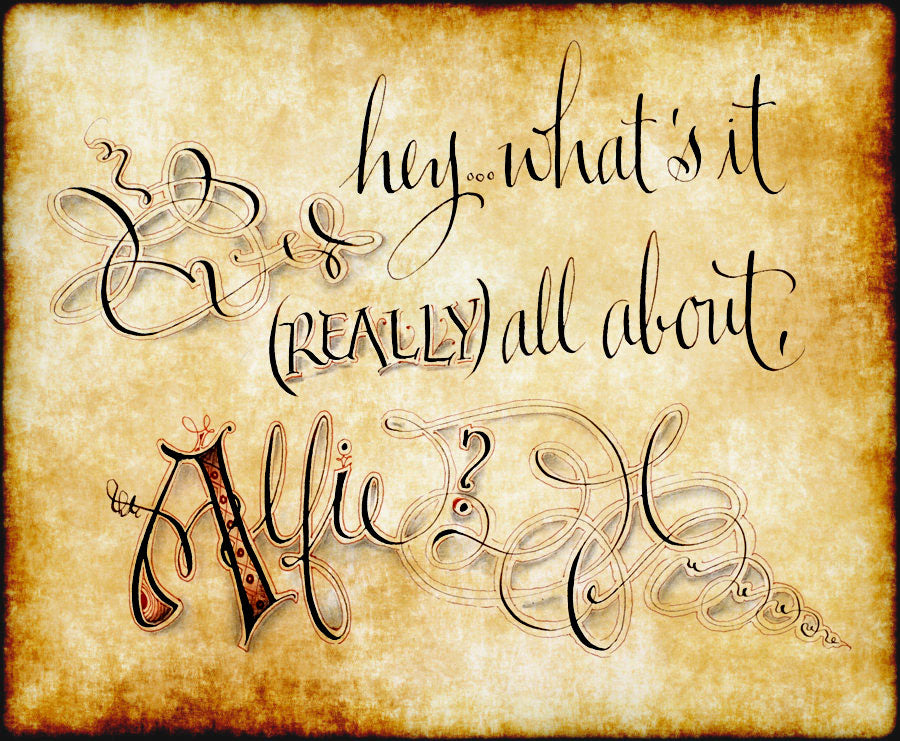 hey...what's it
(REALLY) all about,
Alfie?